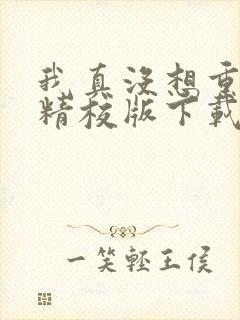 我真没想重
精校版下载
一笑轻王侯